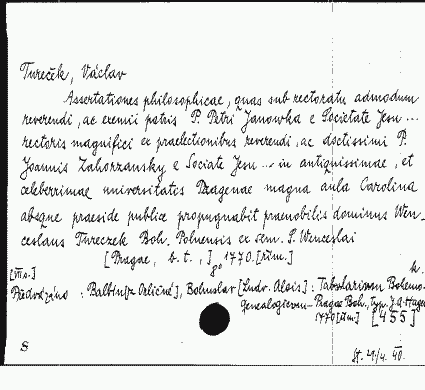 Tureček, Václav
Assertationes philosophicae, quas sub rectoratu admodum
reverendi, ac eximii patris P. Petri Janowka e Societate Jesu ...
rectoris magnifici ex praelectionibus reverendi, ac doctissimi P.
Joannis Zahorzansky e Sociate Jesu ... in antiquissimae, et
celeberrimae universitatis Pragenae magna aula Carolina
absque praeside publice propugnabit praenobilis dominus Wen-
ceslaus Tureczek Boh. Polnensis ex sem. S. Wenceslai
[Pragae, s. t.,] 1770.[řím.]
8°
[Tit.]
Předvázáno : Balbín [z Orličné], Bohuslav [Ludv. Alois] : Tabularium Bohemo-
genealogicum Pragae Boh., typ. J. A. Hagen
1770 [řím.] [455]
S
St. 29/4. 40.